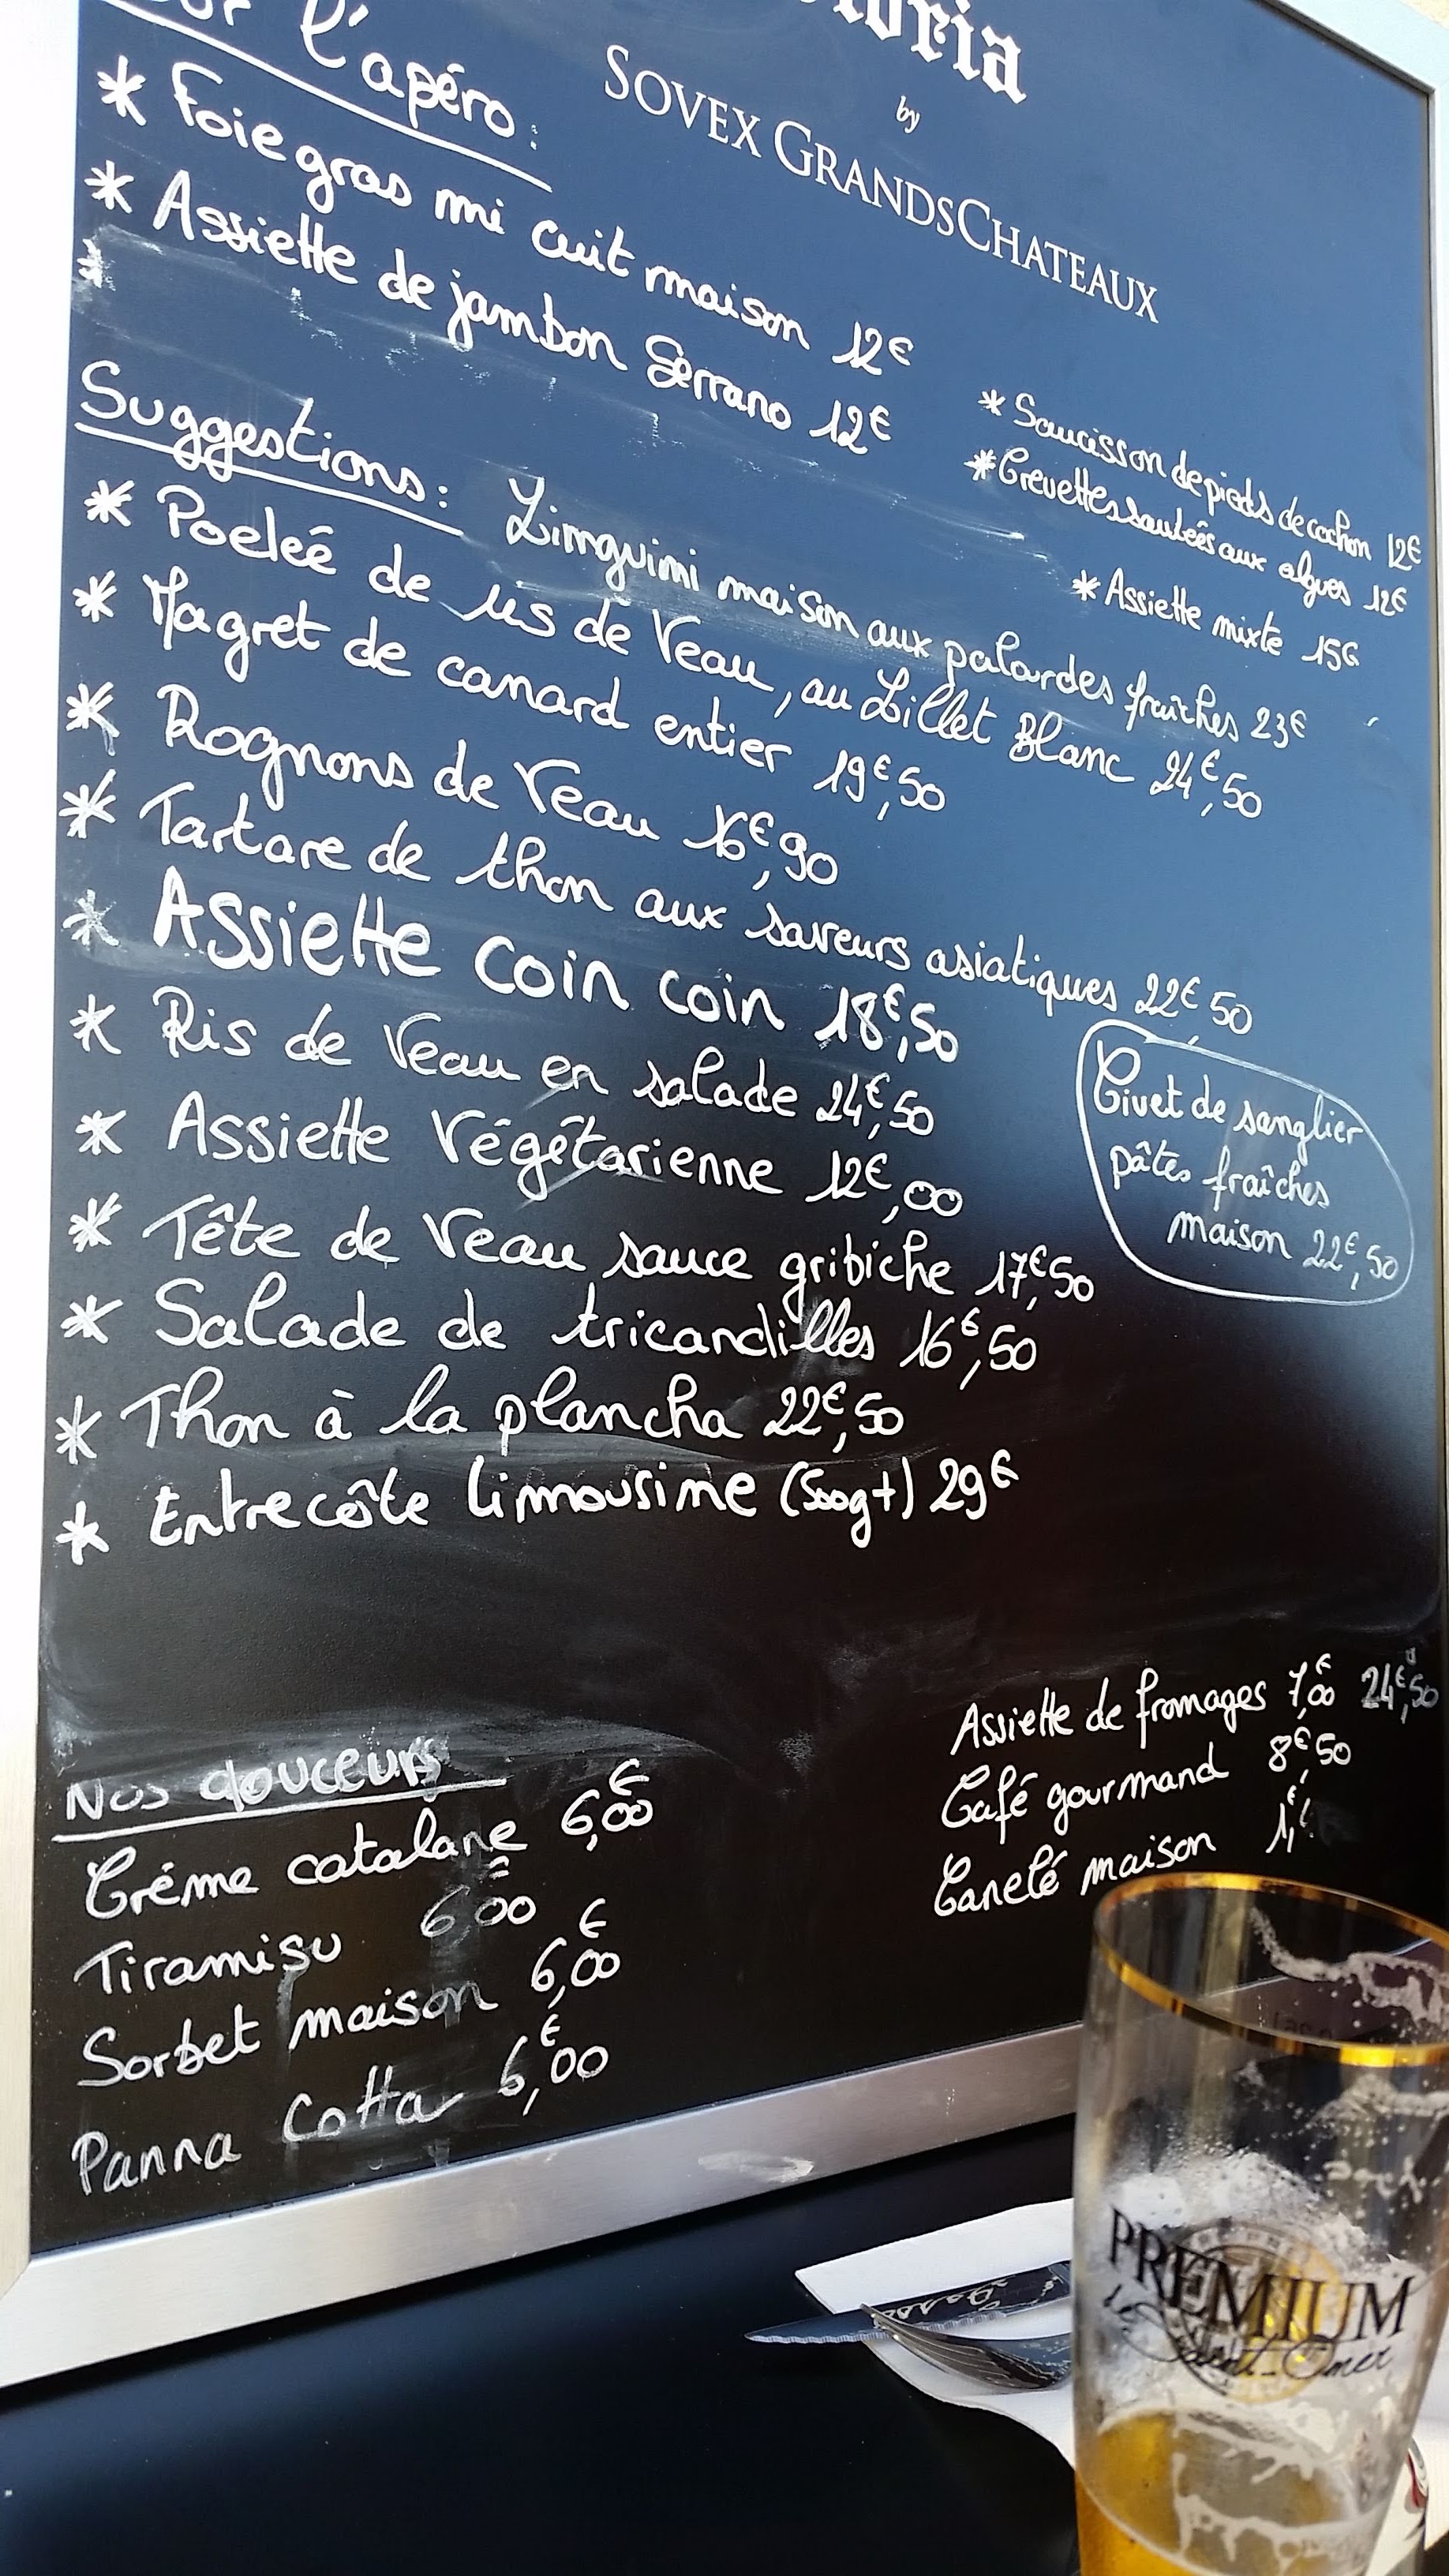 l'apéro :
by
SOVEX GRANDSCHATEAUX
* Foie gras mi cuit maison 12€
* Assiette de jambon Serrano 12€
*
* Saucisson de pieds de cochon 12€
* Crevettes sautées aux algues 12€
* Assiette mixte 15€
Suggestions : Linguini maison aux palourdes fraîches 23€
* Poeleé de ris de Veau, au Lillet Blanc 24€,50
* Magret de canard entier 19€,50
* Rognons de Veau 16€,90
* Tartare de thon aux saveurs asiatiques 22€,50
* Assiette coin coin 18€,50
* Ris de Veau en salade 24€,50
* Assiette Végétarienne 12€,00
* Tête de Veau sauce gribiche 17€,50
* Salade de tricandilles 16€,50
* Thon à la plancha 22€,50
* Entrecôte limousine (500g+) 29€
Civet de sanglier
pâtes fraîches
maison 22€,50
Nos douceurs
Créme catalane 6,00€
Tiramisu 6€00
Sorbet maison 6,00€
Panna Cotta 6,00€
Assiette de fromages 7,00€ 24€,50
Café gourmand 8€,50
Canelé maison
PREMIUM
de Saint-Omer